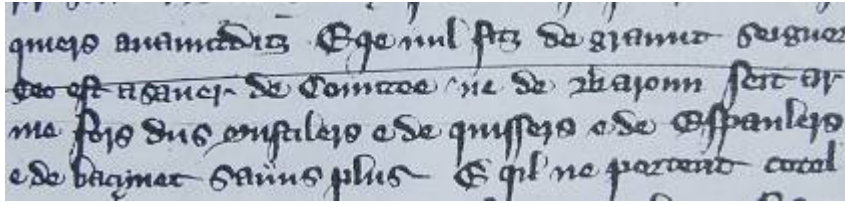 quiers avauntditz E qe nul fitz de graunt seignor
Ceo est asaver de Countee ne de Baroun seit ar
me fors dus mustilers e de quissers e de Espaulers
e de bacynet sauns plus E qil ne portent cotel